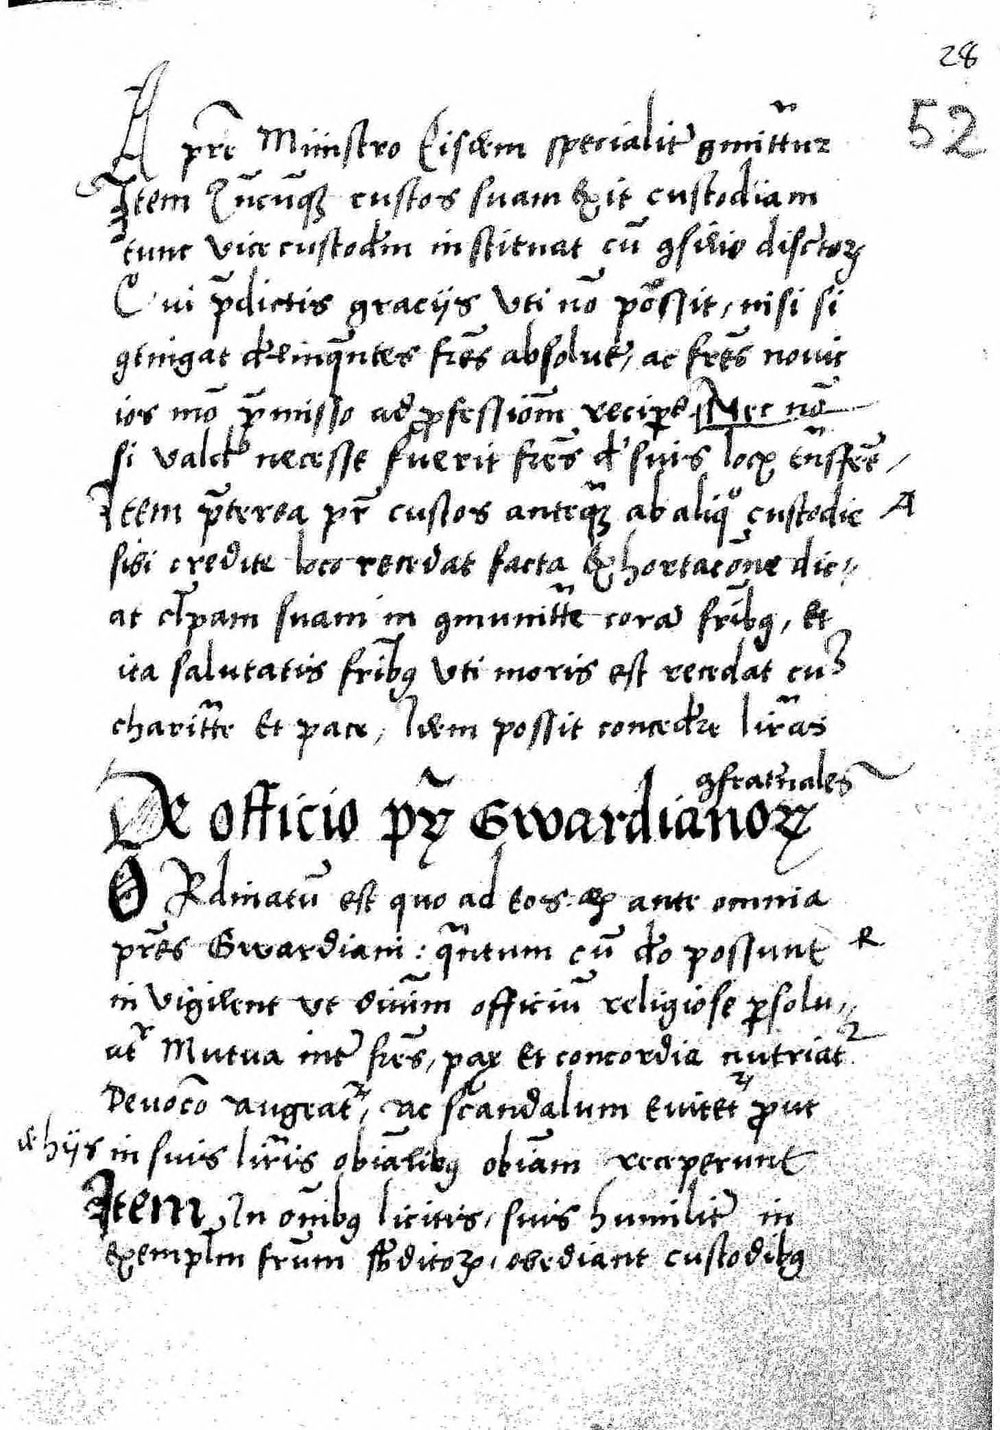 28
52
A pr̄e Miinstro Eisdem specialit̄ 9mitt̄ur
Item Qūcūq3 custos suam exit custodiam
tunc vice custodēm instituat cū 9silio discr̄toꝝ
Qui p̄dictis graciis vti nō possit, nisi si
9tingat delinquentes fr̄es absolūe, ac fr̄es nouit
ios mō p̄misso ad ꝓfessionē recipe Nec nō
si valde necesse fuerit fr̄es de suis locꝭ tn̄sferē,
Item p̄terea pr̄ custos anteq̄3 ab aliqͦ custodie A
sibi credite loco recedat facta exhortacōne dic,,
at cl̄pam suam in 9munitt̄e corā fr̄ibꝰ, Et
ita salutatis fr̄ibꝰ vti moris est recedat cu3
charitt̄e Et pace, Idem possit concedere lir̄as
9frat̄nales
De officio pr̄ꝝ Gwardianoꝝ
ORdinatū est quo ad Eos ꝙ ante omnia
pr̄es Gwardiani : q̄ntum cū deo possunt R
in vigilent vt diuīm officiū religiose p̄solu,,
at̄r Mutua int̄ fr̄es, pax Et concordia nutriat2
Deuocō augeat̄r, ac scandalum Euitet̄r ꝓut
de hijs in suis lir̄is obiālibꝰ obiām receperunt
Item In om̄ibꝰ licitis, suis humilit̄ in
exempl̄m fr̄um sb̄ditoꝝ, obediant custodibꝰ